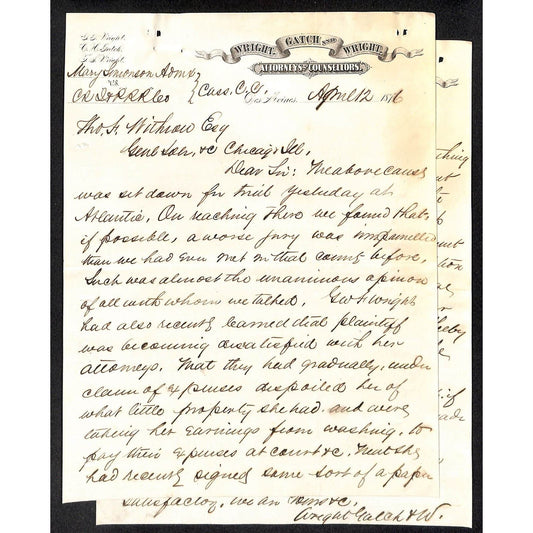 G. G. Wright.
C. H. Gatch.
T. S. Wright.
WRIGHT, GATCH AND WRIGHT,
ATTORNEYS & COUNSELLORS
Mary Simonson Admx
vs
C R I & P R R Co
Cass. C. C.
Des Moines, April 12 1876
Tho. F. Withrow Esq
Genl Solr, &c Chicago Ill.
Dear Sir: The above cause
was set down for trial yesterday at
Atlantic. On reaching there we found that,
if possible, a worse jury was impanelled
than we had ever met in that county before.
Such was almost the unanimous opinion
of all with whom we talked. Wright
had also recently learned that plaintiff
was becoming dissatisfied with her
attorneys. That they had gradually, under
claim of expenses despoiled her of
what little property she had. and were
taking her earnings from washing, to
pay their expenses at court &c. That she
had recently signed some sort of a paper
satisfactory, we are yours &c.
Wright Gatch & W.